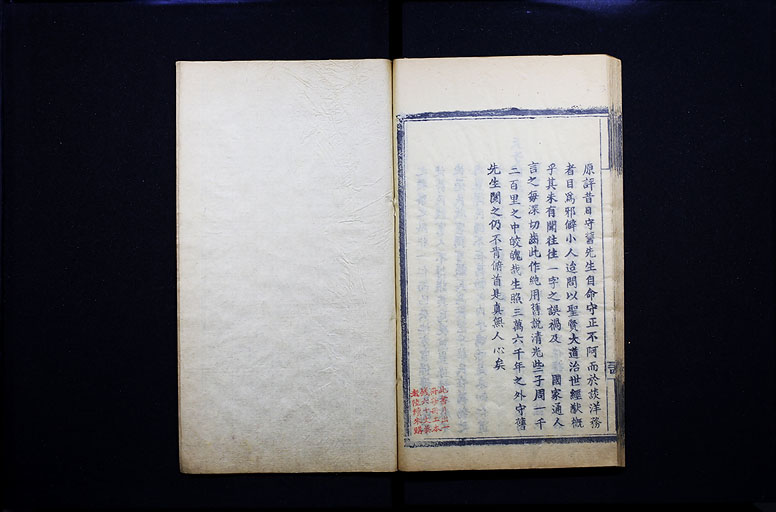 原評昔日守舊先生自命守正不阿而於談洋務
者目爲邪僻小人迨問以聖賢大道治世經猷概
乎其未有聞往往一字之誤禍及 國家通人
言之每深切齒此作純用舊說清光些子周一千
二百里之中皎魄哉生照三萬六千年之外守舊
先生聞之仍不肯俯首是真無人心矣
此卷